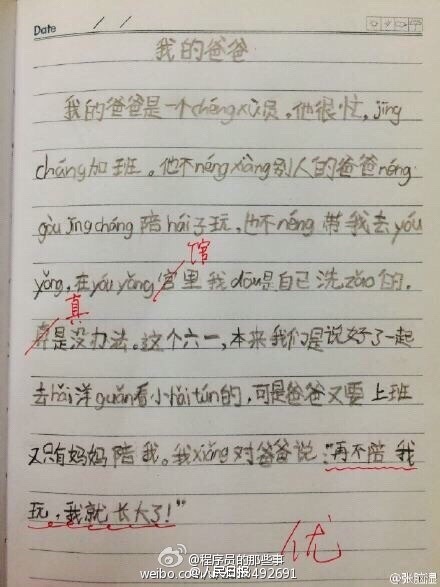 Date / /
我的爸爸
我的爸爸是一个chéngxù员。他很忙，jīng
cháng加班。他不néngxiàng别人的爸爸néng
gòu jīngcháng陪hái子玩，也不néng带我去yóu
馆
yǒng，在yóuyǒng官里我dōu是自己洗zǎo的，
真
真是没办法。这个六一，本来我们是说好了一起
去hǎi洋guǎn看小hǎitún的，可是爸爸又要上班
又只有妈妈陪我。我xiǎng对爸爸说："再不陪我
玩，我就长大了！"
优
@程序员的那些事
@人民日报
weibo.com/
492691